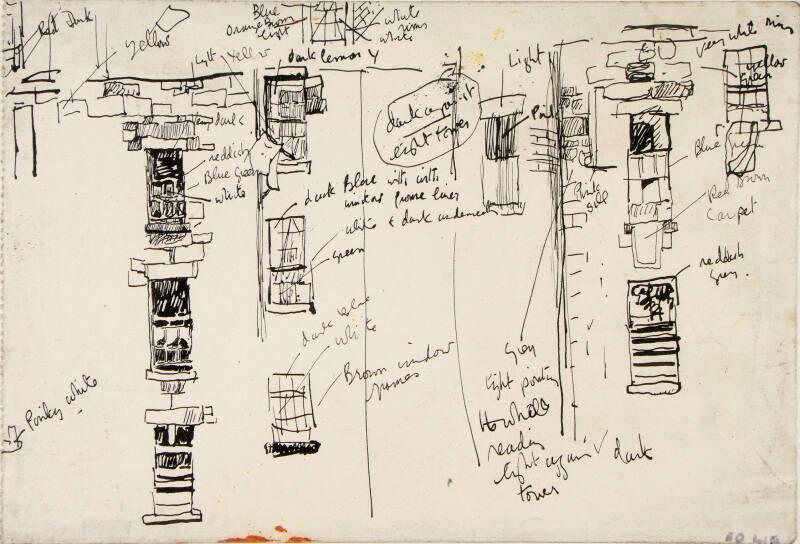 Red Dark
Yellow
Blue
Orange Brown
Light
White
rims
White
Very white rims
Light
Yellow
dark lemon y
Light
yellow
Green
dark against
light tower
dark
reddish
Blue Green
White
Pink
Blue Green
dark Blue with with
window frame lines
white & dark underneath
Green
Pink
Sill
Red Brown
Carpet
reddish
Grey.
dark Blue
White
Brown window
frames
Grey
light pointing
The whole
reading
light against dark
tower
Pinky White